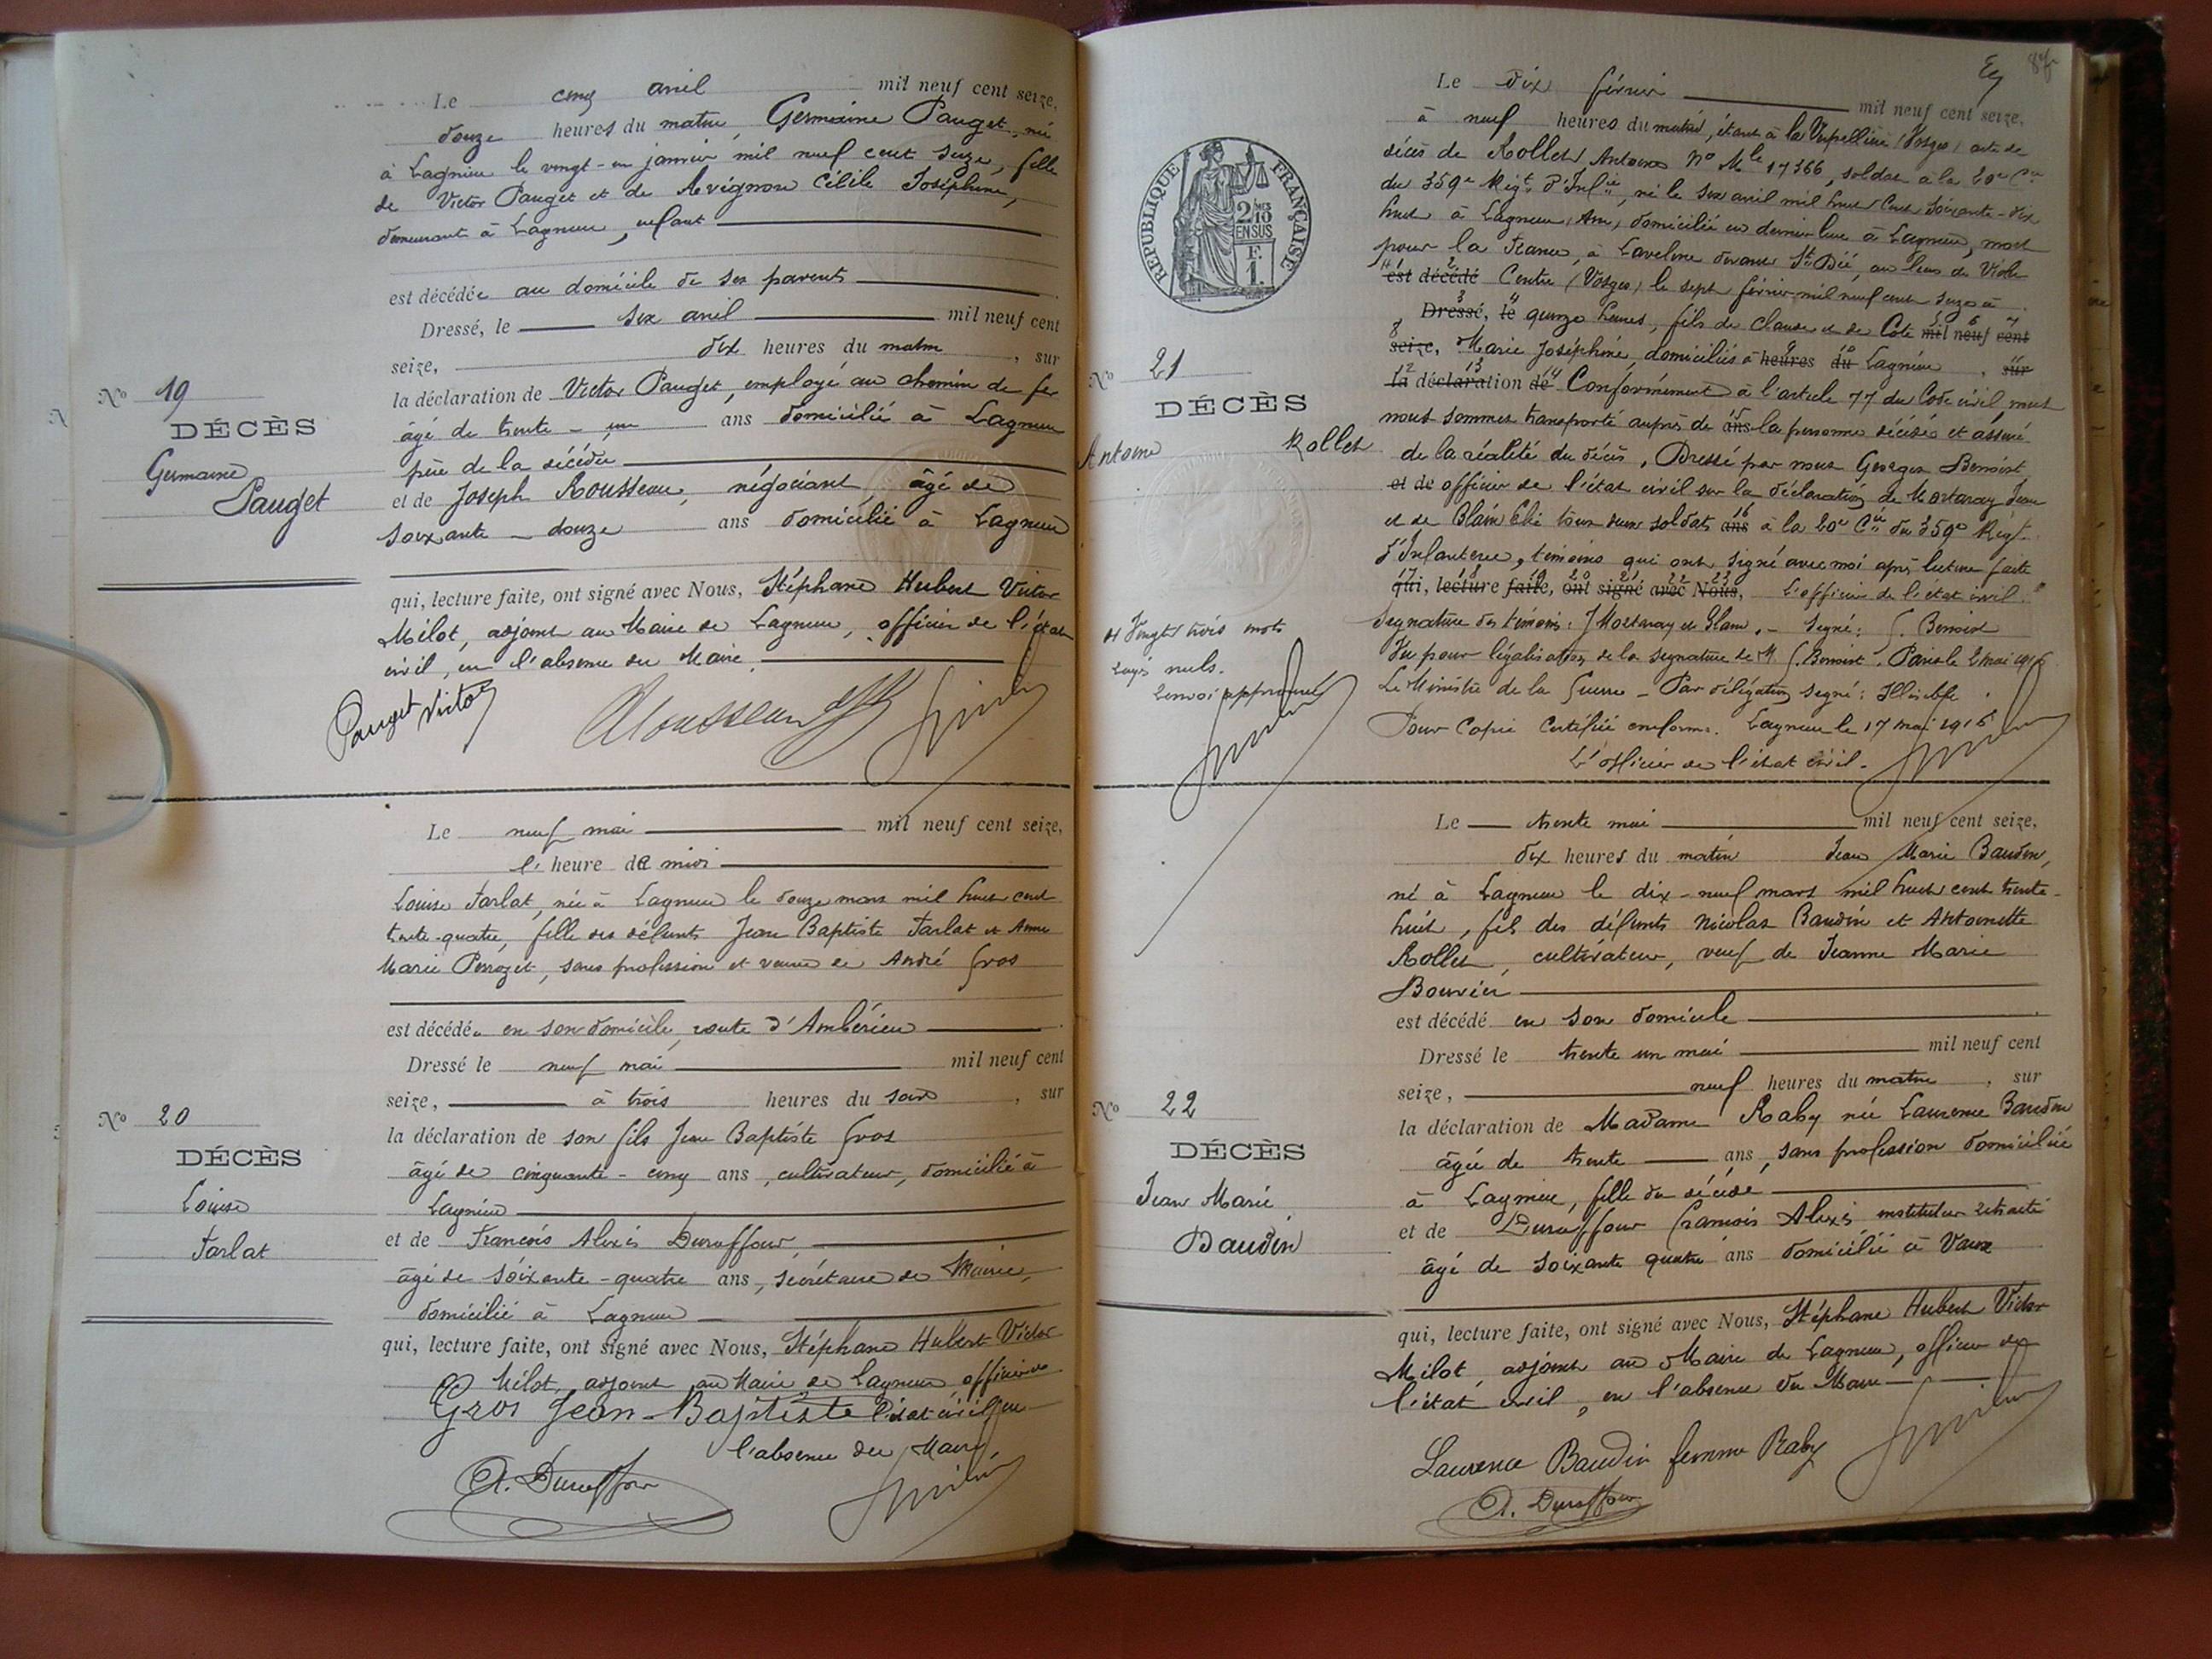 Le cinq avril mil neuf cent seize,
douze heures du matin, Germaine Pauget, née
à Lagnieu le vingt-un janvier mil neuf cent seize, fille
de Victor Pauget et de Avignon Cécile Joséphine,
demeurant à Lagnieu, enfant
est décédée au domicile de ses parents
Dressé, le six avril mil neuf cent
seize, dix heures du matin, sur
la déclaration de Victor Pauget, employé au chemin de fer
âgé de trente-un ans domicilié à Lagnieu
père de la décédée
et de Joseph Rousseau, négociant, âgé de
soixante-douze ans domicilié à Lagnieu
qui, lecture faite, ont signé avec Nous, Stéphane Hubert Victor
Milot, adjoint au Maire de Lagnieu, officier de l'état
civil, en l'absence du Maire.
Pauget Victor
Rousseau
No 19
DÉCÈS
Germaine
Pauget
Le neuf mai mil neuf cent seize,
l'heure de midi
Louise Tarlat, née à Lagnieu le douze mars mil huit cent
trente-quatre, fille des défunts Jean Baptiste Tarlat et Anne
Marie Perrozet, sans profession et veuve de André Gros
est décédée en son domicile, route d'Ambérieu
Dressé le neuf mai mil neuf cent
seize, à trois heures du soir, sur
la déclaration de son fils Jean Baptiste Gros
âgé de cinquante-cinq ans, cultivateur, domicilié à
Lagnieu
et de François Alexis Duraffour,
âgé de soixante-quatre ans, secrétaire de Mairie,
domicilié à Lagnieu
qui, lecture faite, ont signé avec Nous, Stéphane Hubert Victor
Milot, adjoint au Maire de Lagnieu officier de
Gros Jean-Baptiste l'état civil, en
l'absence du Maire,
A. Duraffour
No 20
DÉCÈS
Louise
Tarlat
Le Dix février mil neuf cent seize,
à neuf heures du matin, étant à la Vépellière (Vosges) acte de
décès de Rollet Antoine No Mle 17366, soldat à la 20e Cie
du 359e Régt d'Infie, né le six avril mil huit cent soixante-dix
huit à Lagnieu, Ain, domicilié en dernier lieu à Lagnieu, mort
pour la France, à Laveline devant St Dié, au lieu de Viole
est décédé Centre (Vosges) le sept février mil neuf cent seize à
Dressé, le quinze heures, fils de Claude et de Cote mil neuf cent
seize, Marie Joséphine, domiciliés à heures du Lagnieu, sur
la déclaration de Conformément à l'article 77 du Code civil, nous
nous sommes transporté auprès de ans la personne décédée et assuré
de la réalité du décès. Dressé par nous Georges Benoist
et de officier de l'état civil sur la déclaration de Mortaray Jean
et de Blain Elie tous deux soldats ans à la 20e Cie du 359e Régt
d'Infanterie, témoins qui ont signé avec moi après lecture faite
qui, lecture faite, ont signé avec Nous, L'officier de l'état civil."
Signature des témoins: J Mortaray et Blain. - Signé: G. Benoist
Vu pour légalisation de la signature de M G. Benoist. Paris le 2 mai 1916
Le Ministre de la Guerre - Par délégation signé: Illisible.
Pour copie certifiée conforme. Lagnieu le 17 mai 1916
L'officier de l'état civil.
RÉPUBLIQUE FRANÇAISE
2/10
EN SUS
F.
1.
No 21
DÉCÈS
Antoine Rollet
Vingt trois mots
rayés nuls.
Renvoi approuvé
Le trente mai mil neuf cent seize,
dix heures du matin Jean Marie Baudin,
né à Lagnieu le dix-neuf mars mil huit cent trente-
huit, fils des défunts Nicolas Baudin et Antoinette
Rollet, cultivateur, veuf de Jeanne Marie
Bouvier
est décédé en son domicile
Dressé le trente un mai mil neuf cent
seize, neuf heures du matin, sur
la déclaration de Madame Raby née Laurence Baudin
âgée de trente ans, sans profession domiciliée
à Lagnieu, fille du décédé
et de Duraffour François Alexis instituteur retraité
âgé de soixante quatre ans domicilié à Vaux
qui, lecture faite, ont signé avec Nous, Stéphane Hubert Victor
Milot, adjoint au Maire de Lagnieu, officier de
l'état civil, en l'absence du Maire
Laurence Baudin femme Raby
A. Duraffour
No 22
DÉCÈS
Jean Marie
Baudin